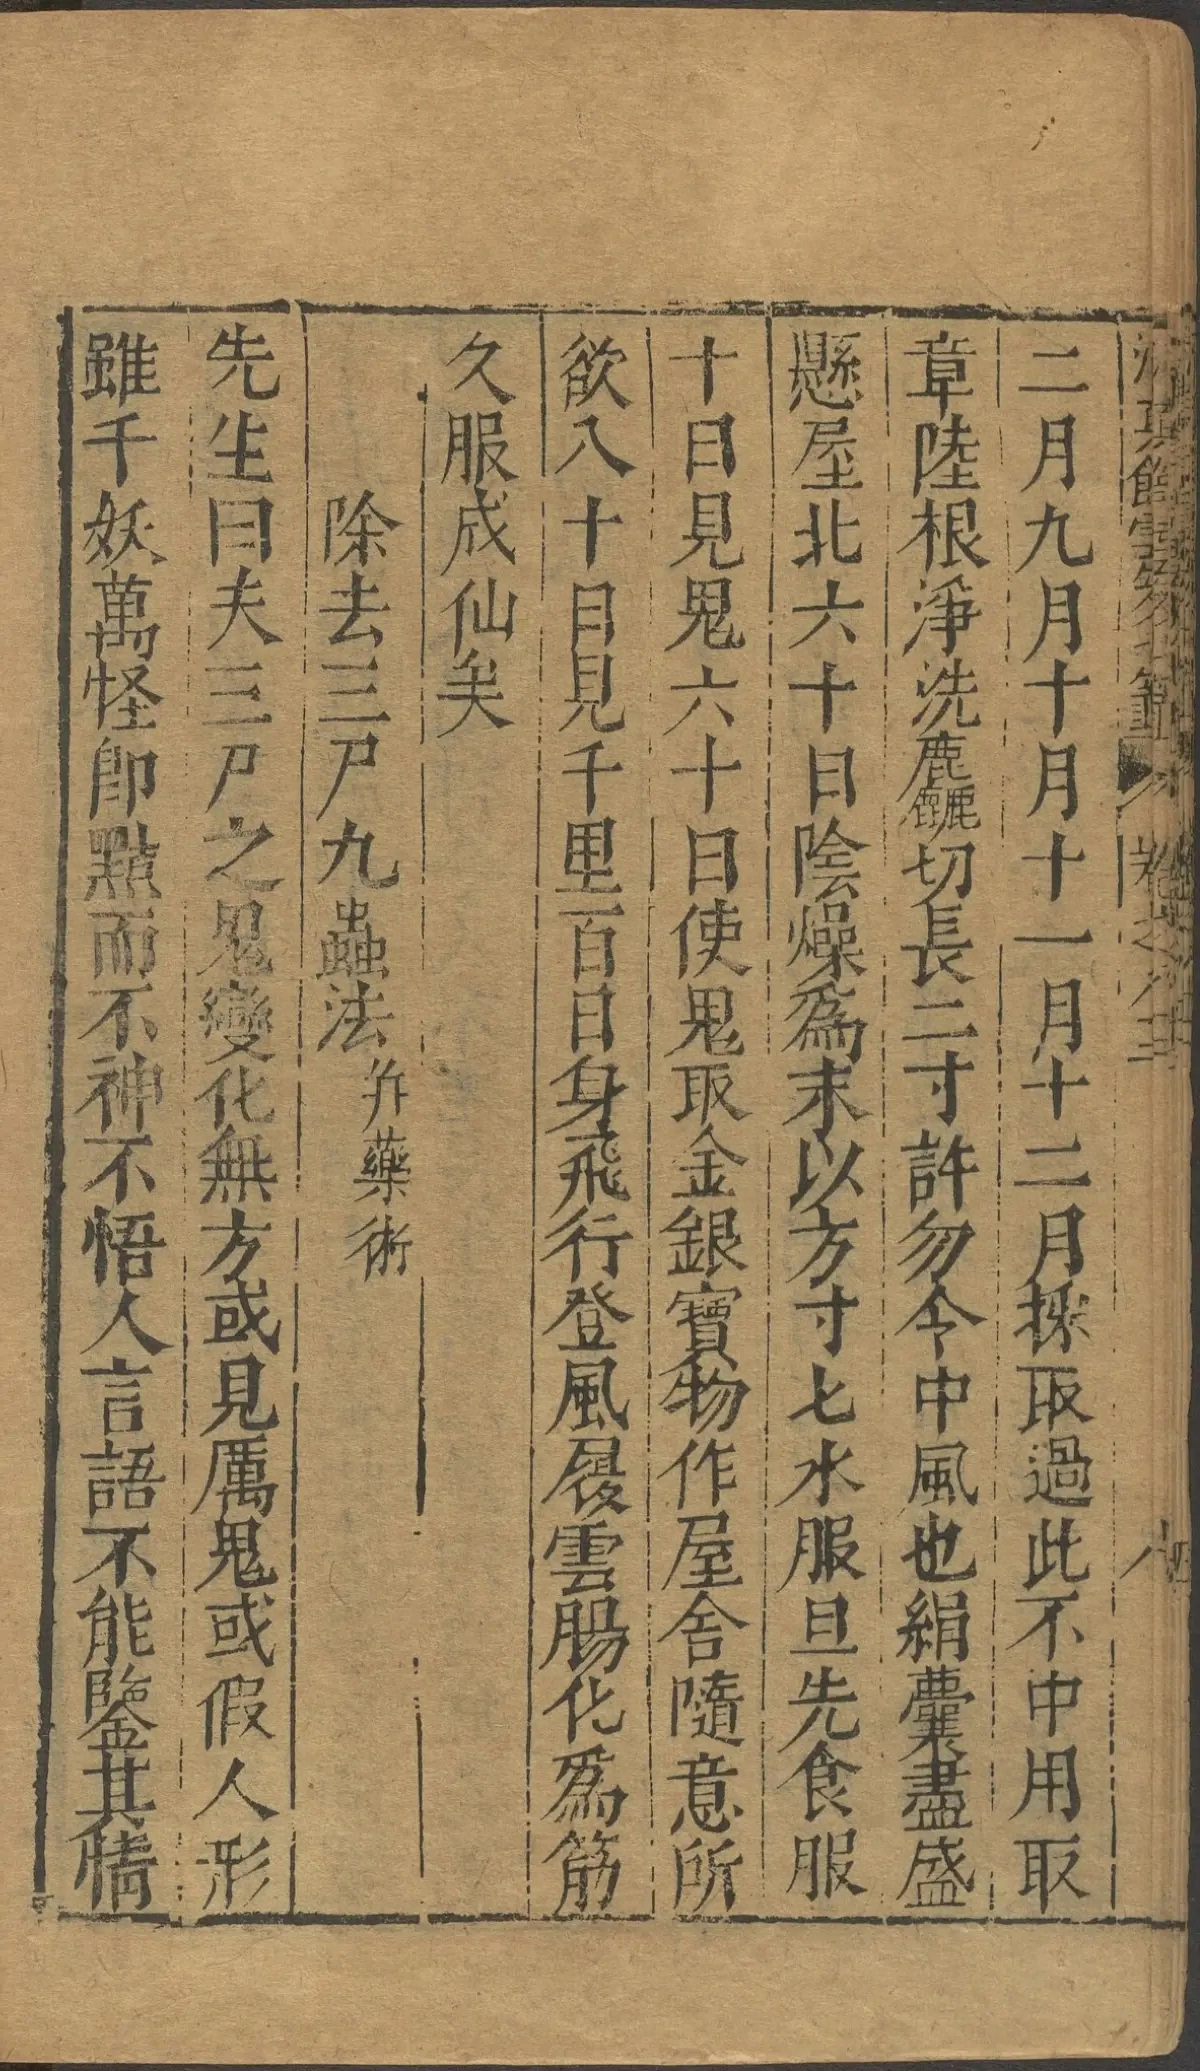 二月九月十月十一月十二月採取過此不中用取
章陸根淨洗麁麤切長二寸許勿令中風也絹囊盡盛
懸屋北六十日陰燥為末以方寸匕水服旦先食服
十日見鬼六十日使鬼取金銀寶物作屋舍隨意所
欲八十日見千里百日身飛行登風履雲腸化為筋
久服成仙矣
除去三尸九蟲法并藥術
先生曰夫三尸之鬼變化無方或見厲鬼或假人形
雖千妖萬怪即點而不神不悟人言語不能鑒其情